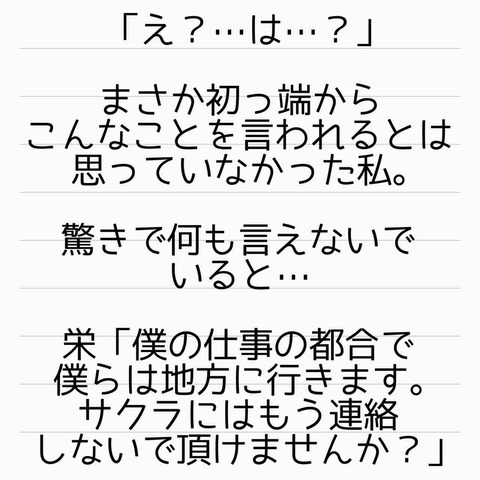 「え？…は…？」
まさか初っ端から
こんなことを言われるとは
思っていなかった私。
驚きで何も言えないで
いると…
栄「僕の仕事の都合で
僕らは地方に行きます。
サクラにはもう連絡
しないで頂けませんか？」